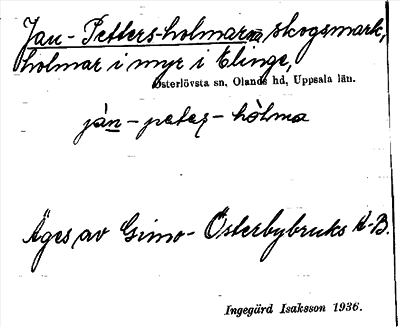 Jan-Petters-holmarna, skogsmark,
holmar i myr i Elinge,
Österlövsta sn, Olands hd, Uppsala län.
jàn-petes-hòlma
Äges av Gimo-Österbybruks A-B.
Ingegärd Isaksson 1936.